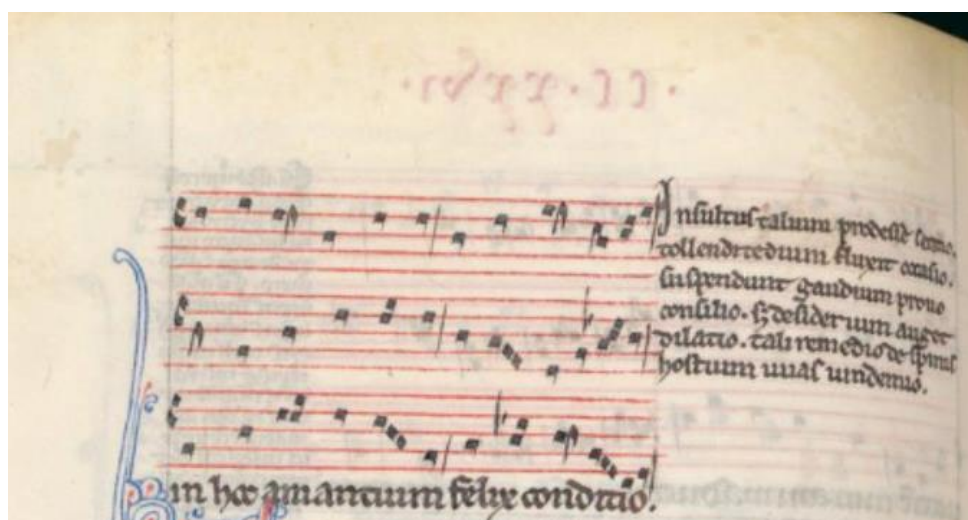 Insultus talium prodesse sentio.
tollendi tedium fluxit occasio.
suspendunt gaudium prauo
consilio. s; desiderium auget
dilatio. tali remedio de spinis
hostium uuas uindemio.
in hoc amantium felix conditio.